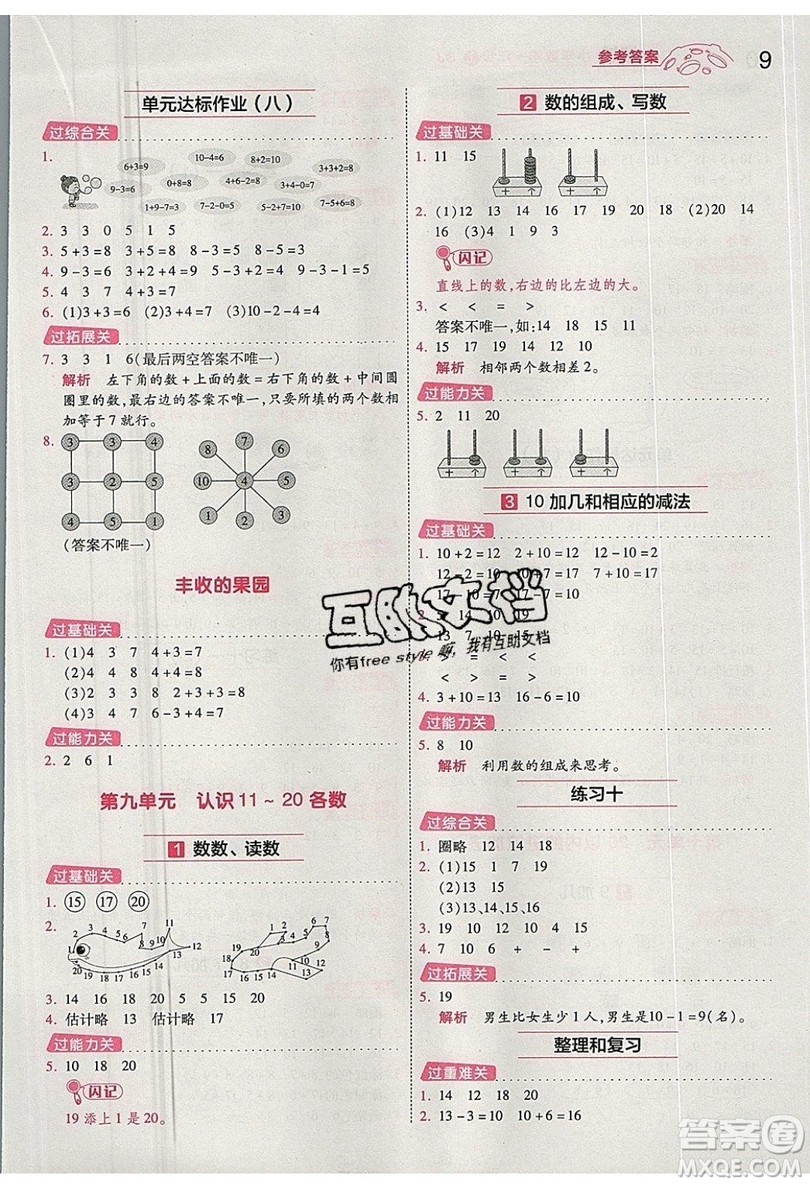 参考答案
9
单元达标作业(八)
过综合关
1.
6+3=9 10-4=6 8+2=10
9-3=6 0+8=8 3+4-0=7
1+9-7=3 8-5+0=3 7-5+6=8
2. 3 3 0 5 1 5
3. 5+3=8 3+5=8 8-5=3 8-3=5
4. 9-3=6 9-6=3 3+6=9 6+3=9
5. 4 3 7 4+3=7
6. (1)3+3=6 (2)3+4=7 (3)10-2-4=4
过拓展关
7. 3 3 1 6(最后两空答案不唯一)
解析 左下角的数+上面的数=6,左下角的数+中间圆
圈里的数,最右边的答案不唯一,只要所填的两个数相
加等于7就行。
8.
3 4 5
6 4 2
4 5 1
7
8 6
10 4
1 3
2
(答案不唯一)
丰收的果园
过基础关
1. (1)4 3 7 4+3=7
(2)4 4 8 4+4=8
(3)2 2 8 4 8-2-2=4
(4)7 3 3 7 6-3+4=7
过能力关
2. 2 6 1
第九单元 认识11~20各数
1 数数、读数
过基础关
1. 15 17 20
2.
3. 14 16 18 20 15 17 18 20
4. 估计略 13 估计略 17
过能力关
5. 10 18 20
闪记
19添上1是20。
2 数的组成、写数
过基础关
1. 11 15
十 个 十 个
2. (1)12 13 14 16 17 (2)20 14
16 (3)4 1 9 3
闪记
直线上的数,右边的比左边的大。
3. < < = >
答案不唯一,如:14 18 15 11
4. 15 17 19 20 14 12
解析 相邻两个数相差2。
过能力关
5. 2 11 20
十 个 十 个 十 个
3 10加几和相应的减法
过基础关
1. 10+2=12 2+10=12 12-10=2
12-2=10 10+7=17 7+10=17
互助文档
你有free style啊,我有互助文档
> < >
4. 3+10=13 16-6=10
过能力关
5. 8 10
解析 利用数的组成来思考。
练习十
过综合关
1. 圈略 12 14 18
2. (1)15 1 5 7 1 7
(2)13 15
(3)13、14、15、16
3. 19 10 12 15 14 10
4. 7 10 6 + - + -
过拓展关
5. 19
解析 男生比女生少1人,10-1=9(名)。
整理和复习
过重难关
1. 14 12 18 20
2. 13-3=10 10+6=16
答案圈
MXQE.COM